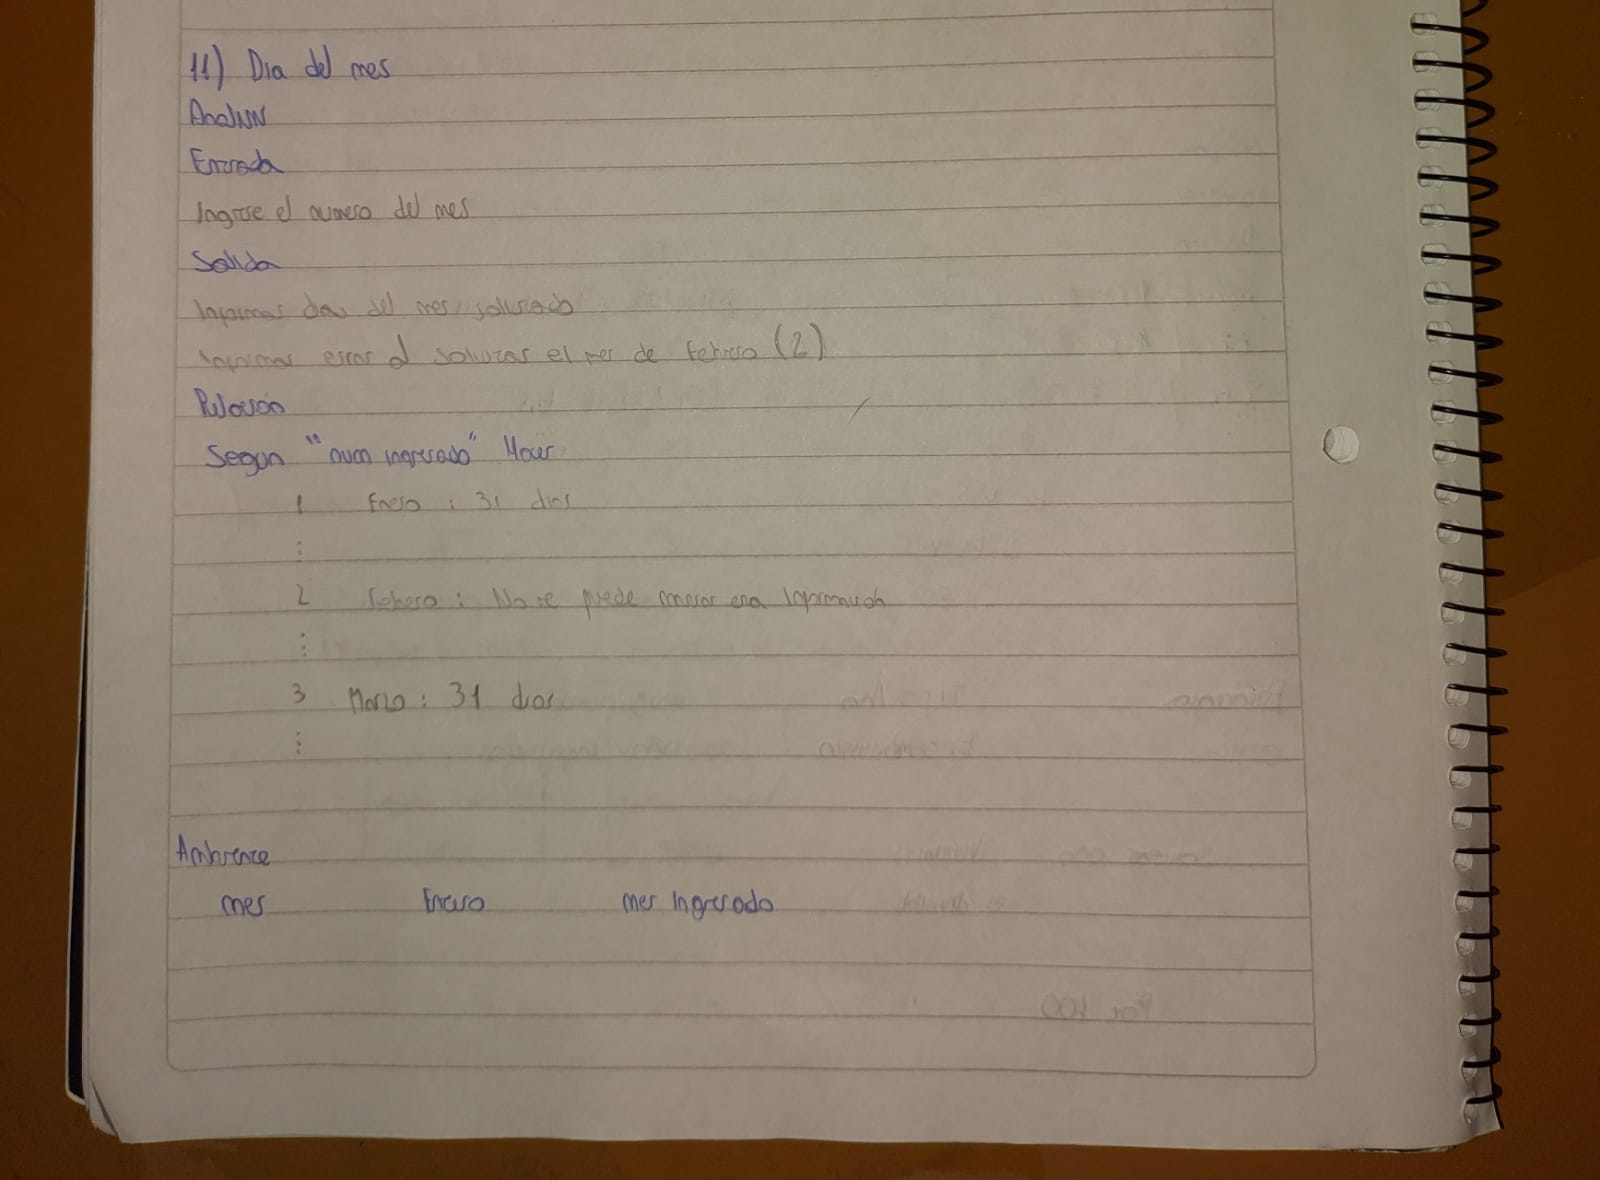 11) Dia del mes
Analisis
Entrada
Ingrese el numero del mes
Salida
Imprimos dias del mes solicitado
Imprimos error al solicitar el mes de febrero (2)
Relacion
Segun "num ingresado" Hacer
1 Enero : 31 dias
:
2 febrero : No se puede mostrar esa Informacion
:
3 Marzo : 31 dias
:
Ambiente
mes Entero mes Ingresado